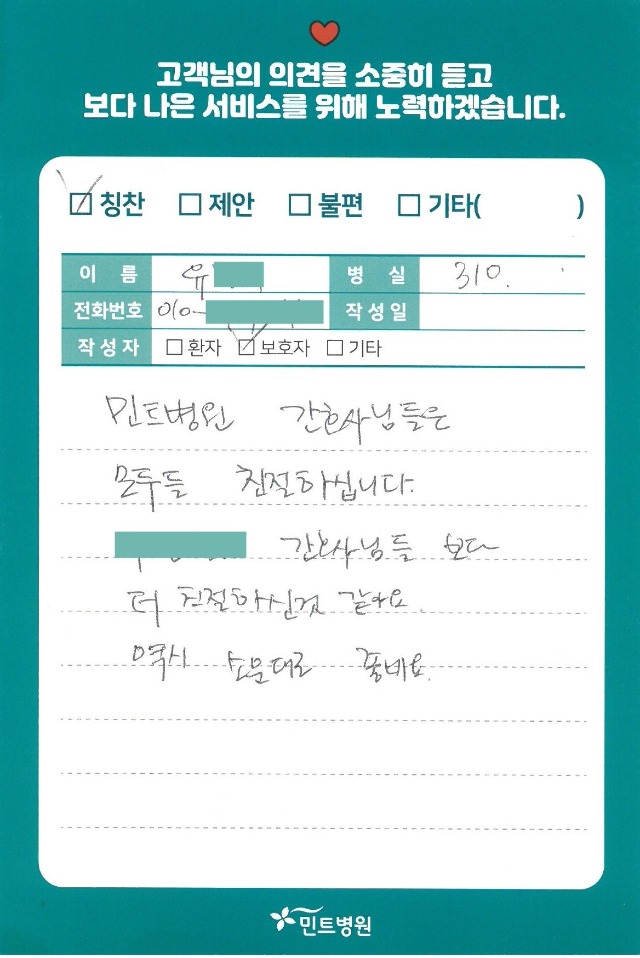 고객님의 의견을 소중히 듣고
보다 나은 서비스를 위해 노력하겠습니다.
☑ 칭찬 ☐ 제안 ☐ 불편 ☐ 기타( )
이 름 유 병 실 310.
전화번호 010- 작성일
작성자 ☐ 환자 ☑ 보호자 ☐ 기타
민트병원 간호사님들은
모두들 친절하십니다.
간호사님들 보다
더 친절하신것 같아요.
역시 소문대로 좋네요.
민트병원